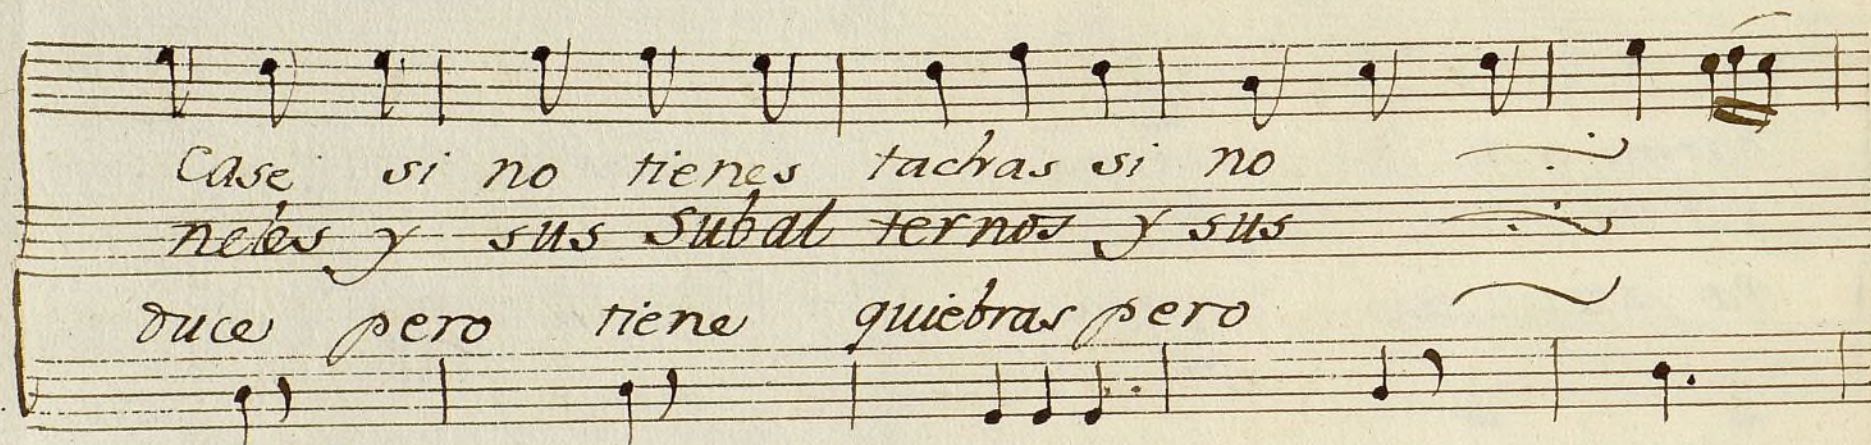 Case si no tienes tachas si no
neles y sus Subal ternos y sus
duce pero tiene quiebras pero